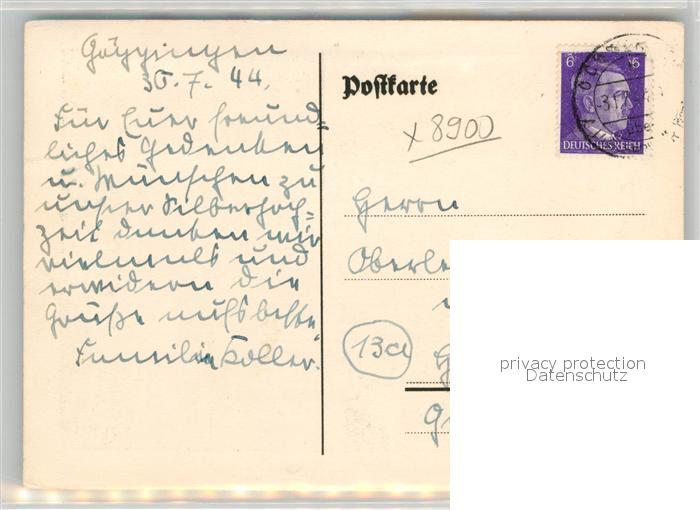 Göggingen
30.7.44.
Für Euer freund=
liches Gedenken
u. Wünschen zu
unsrer Silberhoch=
zeit danken wir
vielmals und
erwidern die
Grüße aufs beste
Familie Koller.
Postkarte
x 8900
6 6
DEUTSCHES REICH
Herrn
13a
privacy protection
Datenschutz